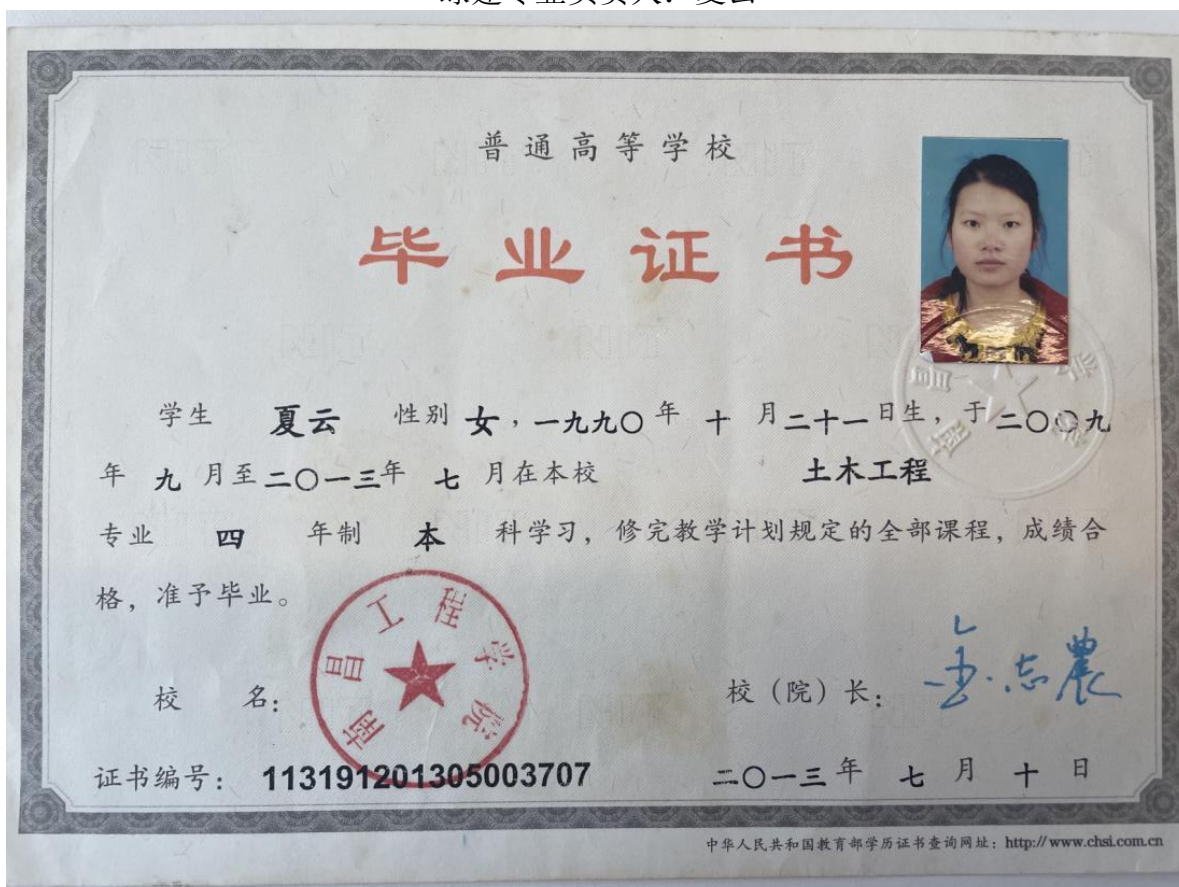 普通高等学校
毕业证书
学生 夏云 性别 女，一九九〇年 十 月二十一日生，于二〇〇九
年 九 月至二〇一三年 七 月在本校 土木工程
专业 四 年制 本 科学习，修完教学计划规定的全部课程，成绩合
格，准予毕业。
南昌工程学院
校 名： 校（院）长：
证书编号： 113191201305003707 二〇一三年 七 月 十 日
中华人民共和国教育部学历证书查询网址：http://www.chsi.com.cn